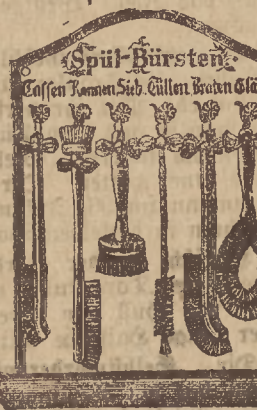 Spül-Bürsten.
Tassen Kannen Sieb. Tüllen Braten Glä